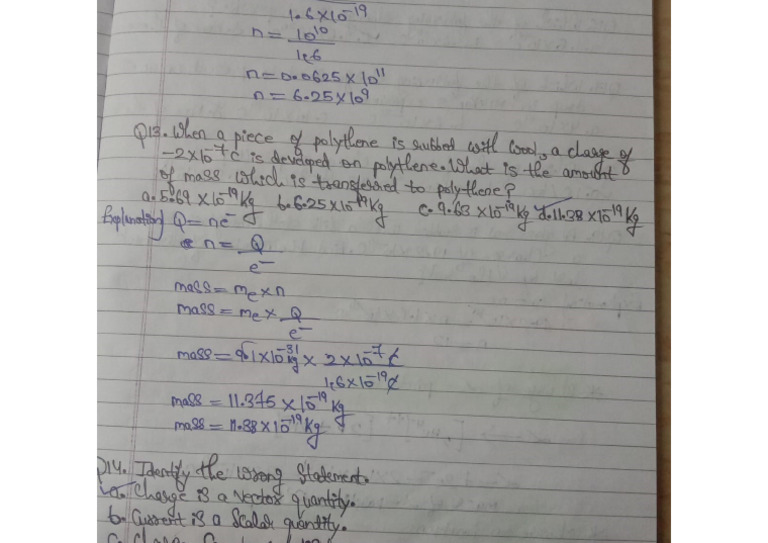 1.6×10⁻¹⁹
n = 10¹⁰
1.6
n = 0.0625 × 10¹¹
n = 6.25 × 10⁹
Q13. When a piece of polythene is rubbed with wool, a charge of
−2×10⁻⁷C is developed on polythene. What is the amount
of mass which is transferred to polythene?
a. 5.69 × 10⁻¹⁹ Kg b. 6.25 × 10⁻¹⁹ Kg c. 9.63 × 10⁻¹⁹ Kg d. 11.38 × 10⁻¹⁹ Kg
Explanation) Q = ne⁻
n = Q
e⁻
mass = me × n
mass = me × Q
e⁻
mass = 9.1×10⁻³¹ kg × 2×10⁻⁷ C
1.6×10⁻¹⁹ C
mass = 11.375 × 10⁻¹⁹ Kg
mass = 11.38 × 10⁻¹⁹ Kg
Q14. Identify the wrong statement.
a. Charge is a vector quantity.
b. Current is a scalar quantity.